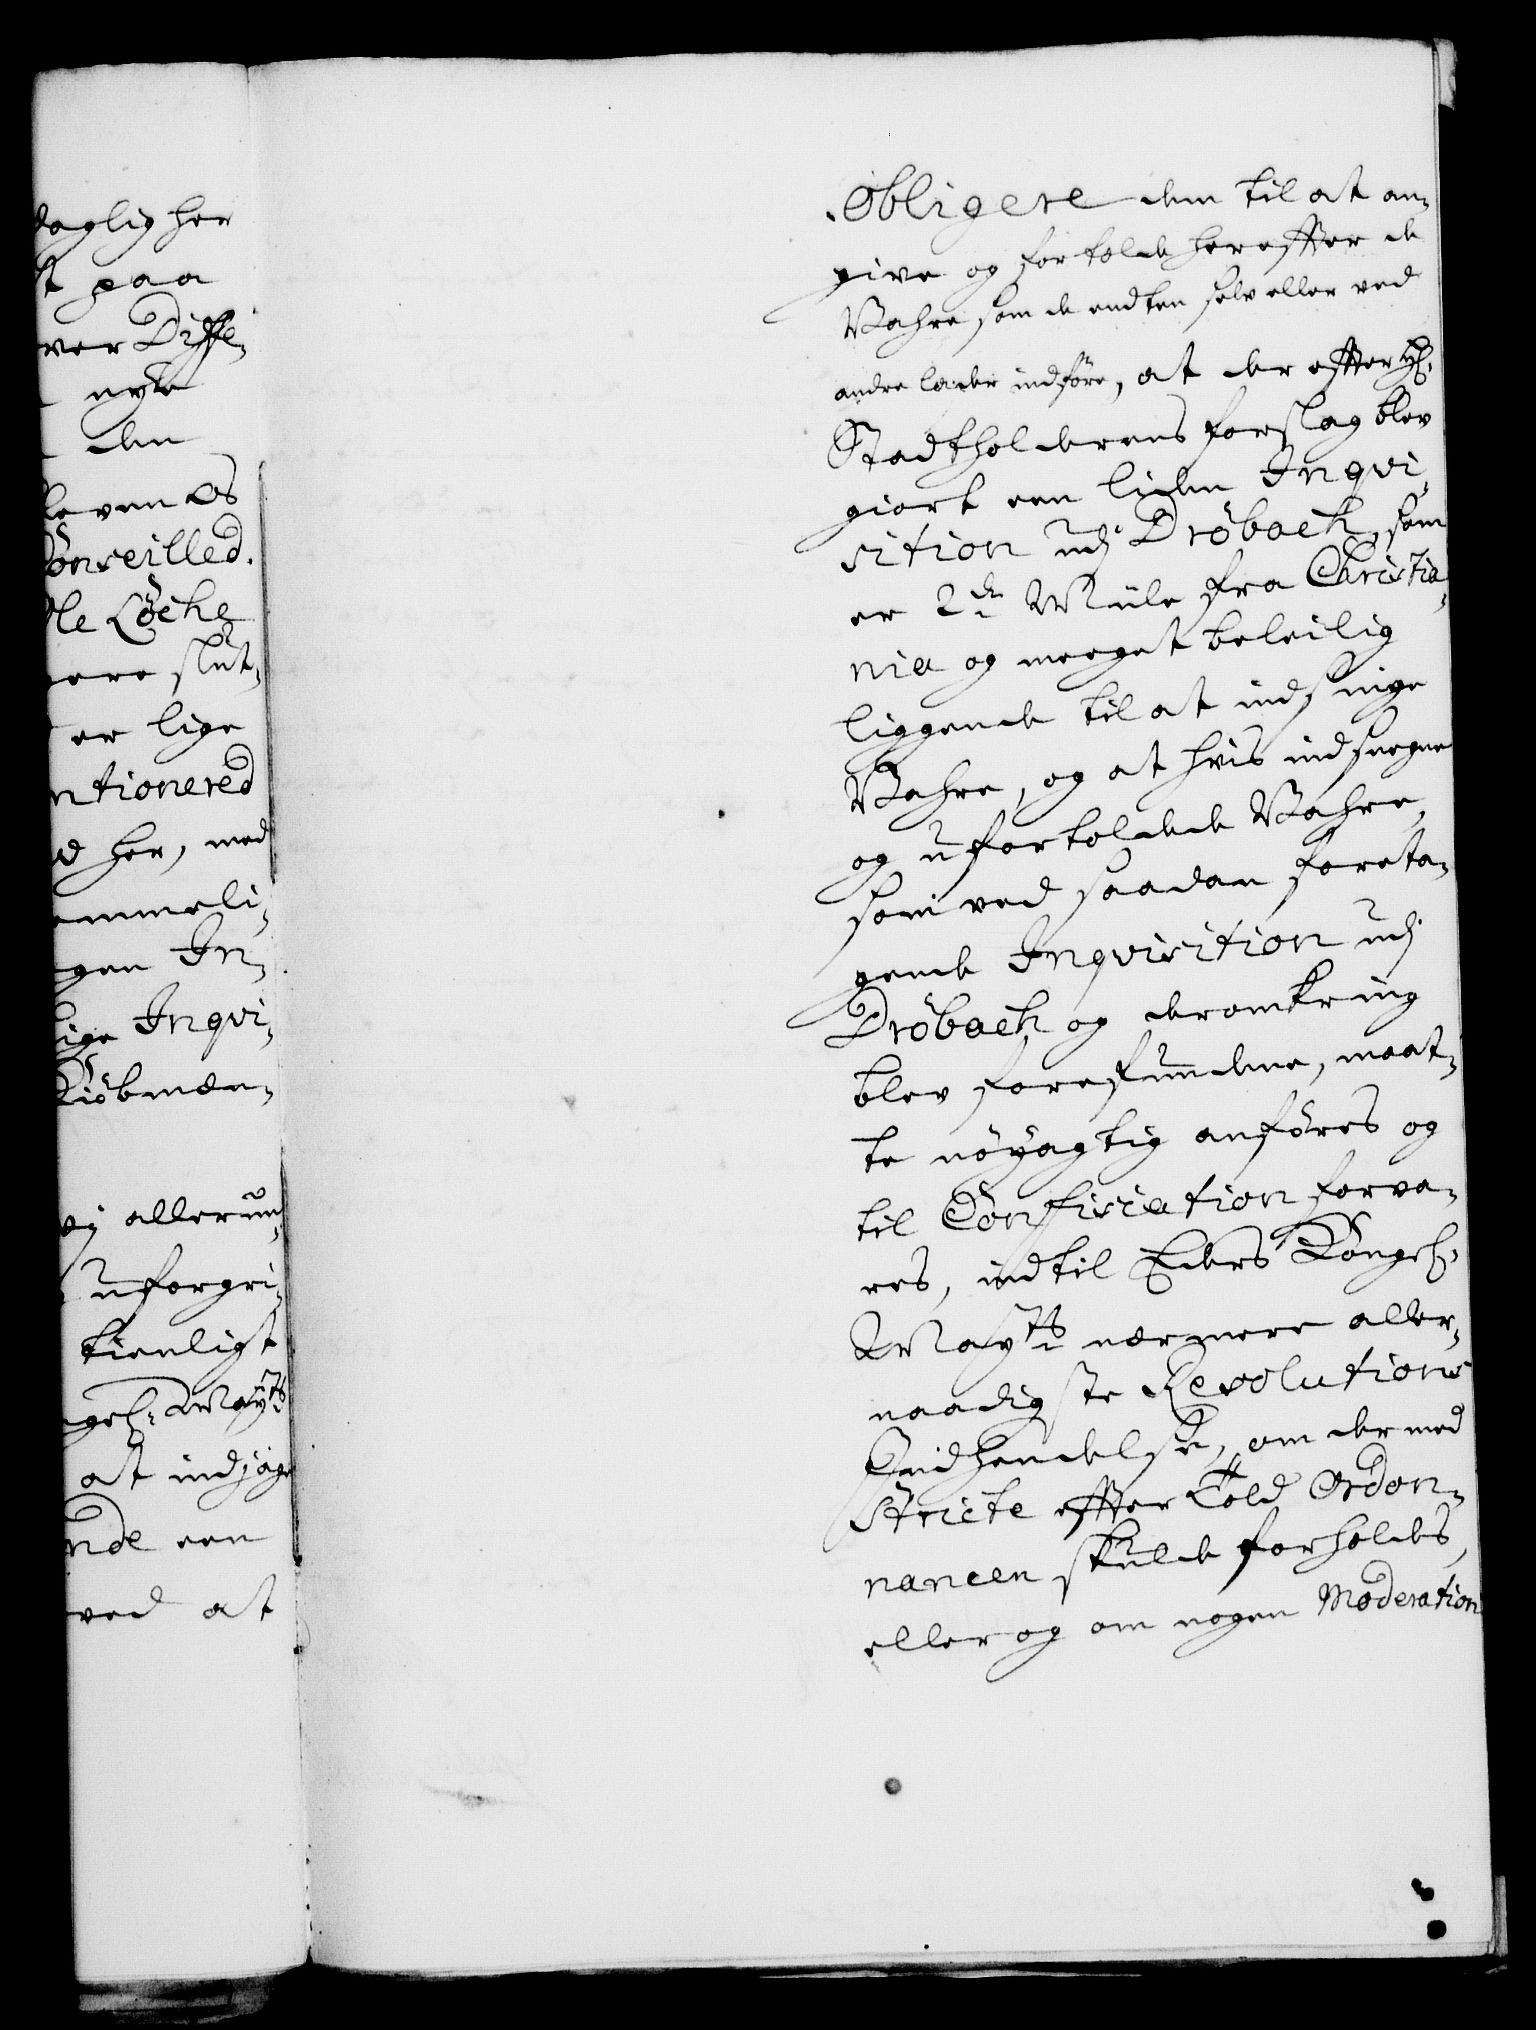 daglig her
t paa
ver Diffe-
nyte
den
leven Os
Conseilled.
lle Löche
ere slut-
er lige
ntionered
her, med
emmeli-
gen In-
lige Inqvi-
Kiöbmæn-
allerun-
uforgri-
tienligst
ngel: Mayts
at indjage
nde een
ved at
Obligere dem til at an-
give og fortolde herefter de
Vahre som de endten selv eller ved
andre lader indföre, at der effter H:
Stadtholderens forslag blev
giort een liden Inqvi-
sition udj Dröbach, som
er 2de Miile fra Christia-
nia og meeget beleilig
liggende til at indsnige
Vahre, og at hvis indsnegne
og ufortoldede Vahre,
som ved saadan foreta-
gende Inqvisition udj
Dröbach og deromkring
blev forefundne, maat-
te nöyagtig anföres og
til Confiscation forva-
res, indtil Eders Kongel:
Mayts nærmere aller-
naadigste Resolutions
Indhendelse, om dermed
stricte effter Told Ordon-
nancen skulde forholdes,
eller og om nogen Moderation